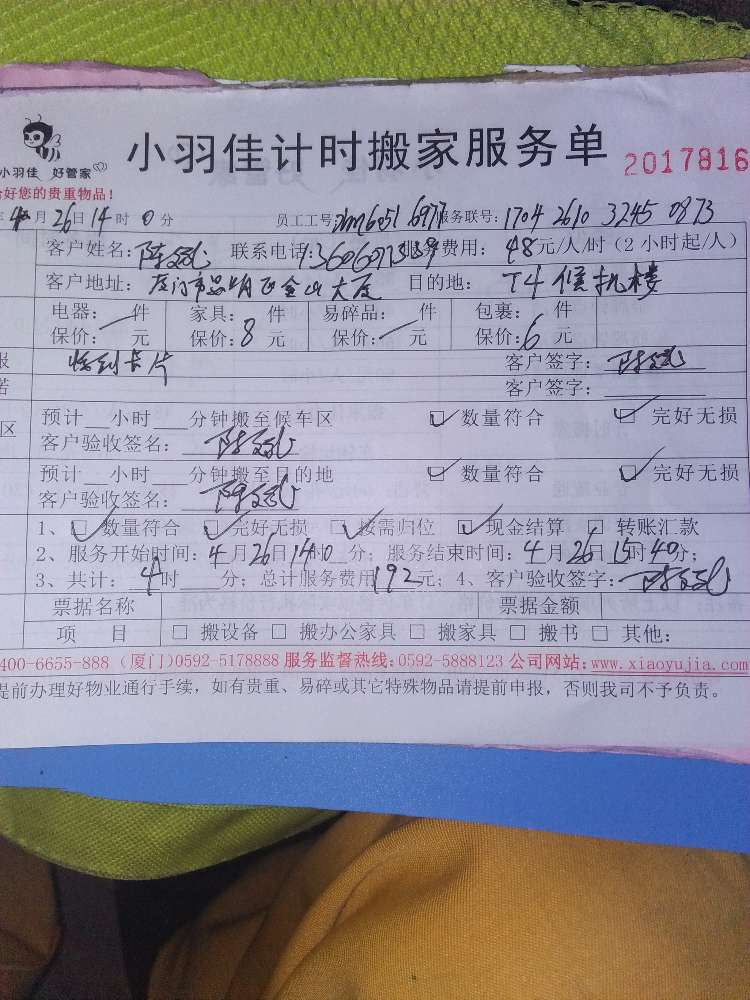 小羽佳 好管家
小羽佳计时搬家服务单
2017816
好您的贵重物品！
月26日14时0分 员工工号: 服务联号: 1704 2610 3245 0873
客户姓名: 陈 联系电话: 费用: 48元/人/时(2小时起/人)
客户地址: 厦门市 金山大厦 目的地: T4候机楼
电器: 件 家具: 件 易碎品: 件 包裹: 件
保价: 一 元 保价: 8 元 保价: 一 元 保价: 6 元
报 收到卡片 客户签字: 陈
若 客户签字:
区 预计__小时__分钟搬至候车区 ☑ 数量符合 ☑ 完好无损
客户验收签名: 陈
预计__小时__分钟搬至目的地 ☑ 数量符合 ☑ 完好无损
客户验收签名: 陈
1、☑ 数量符合 ☑ 完好无损 ☑ 按需归位 ☑ 现金结算 □ 转账汇款
2、服务开始时间: 4月26日14时0分; 服务结束时间: 4月26日15时40分;
3、共计: 4时__分; 总计服务费用192元; 4、客户验收签字: 陈
票据名称 票据金额
项 目 □ 搬设备 □ 搬办公家具 □ 搬家具 □ 搬书 □ 其他:
400-6655-888 (厦门)0592-5178888 服务监督热线: 0592-5888123 公司网站: www.xiaoyujia.com
提前办理好物业通行手续，如有贵重、易碎或其它特殊物品请提前申报，否则我司不予负责。